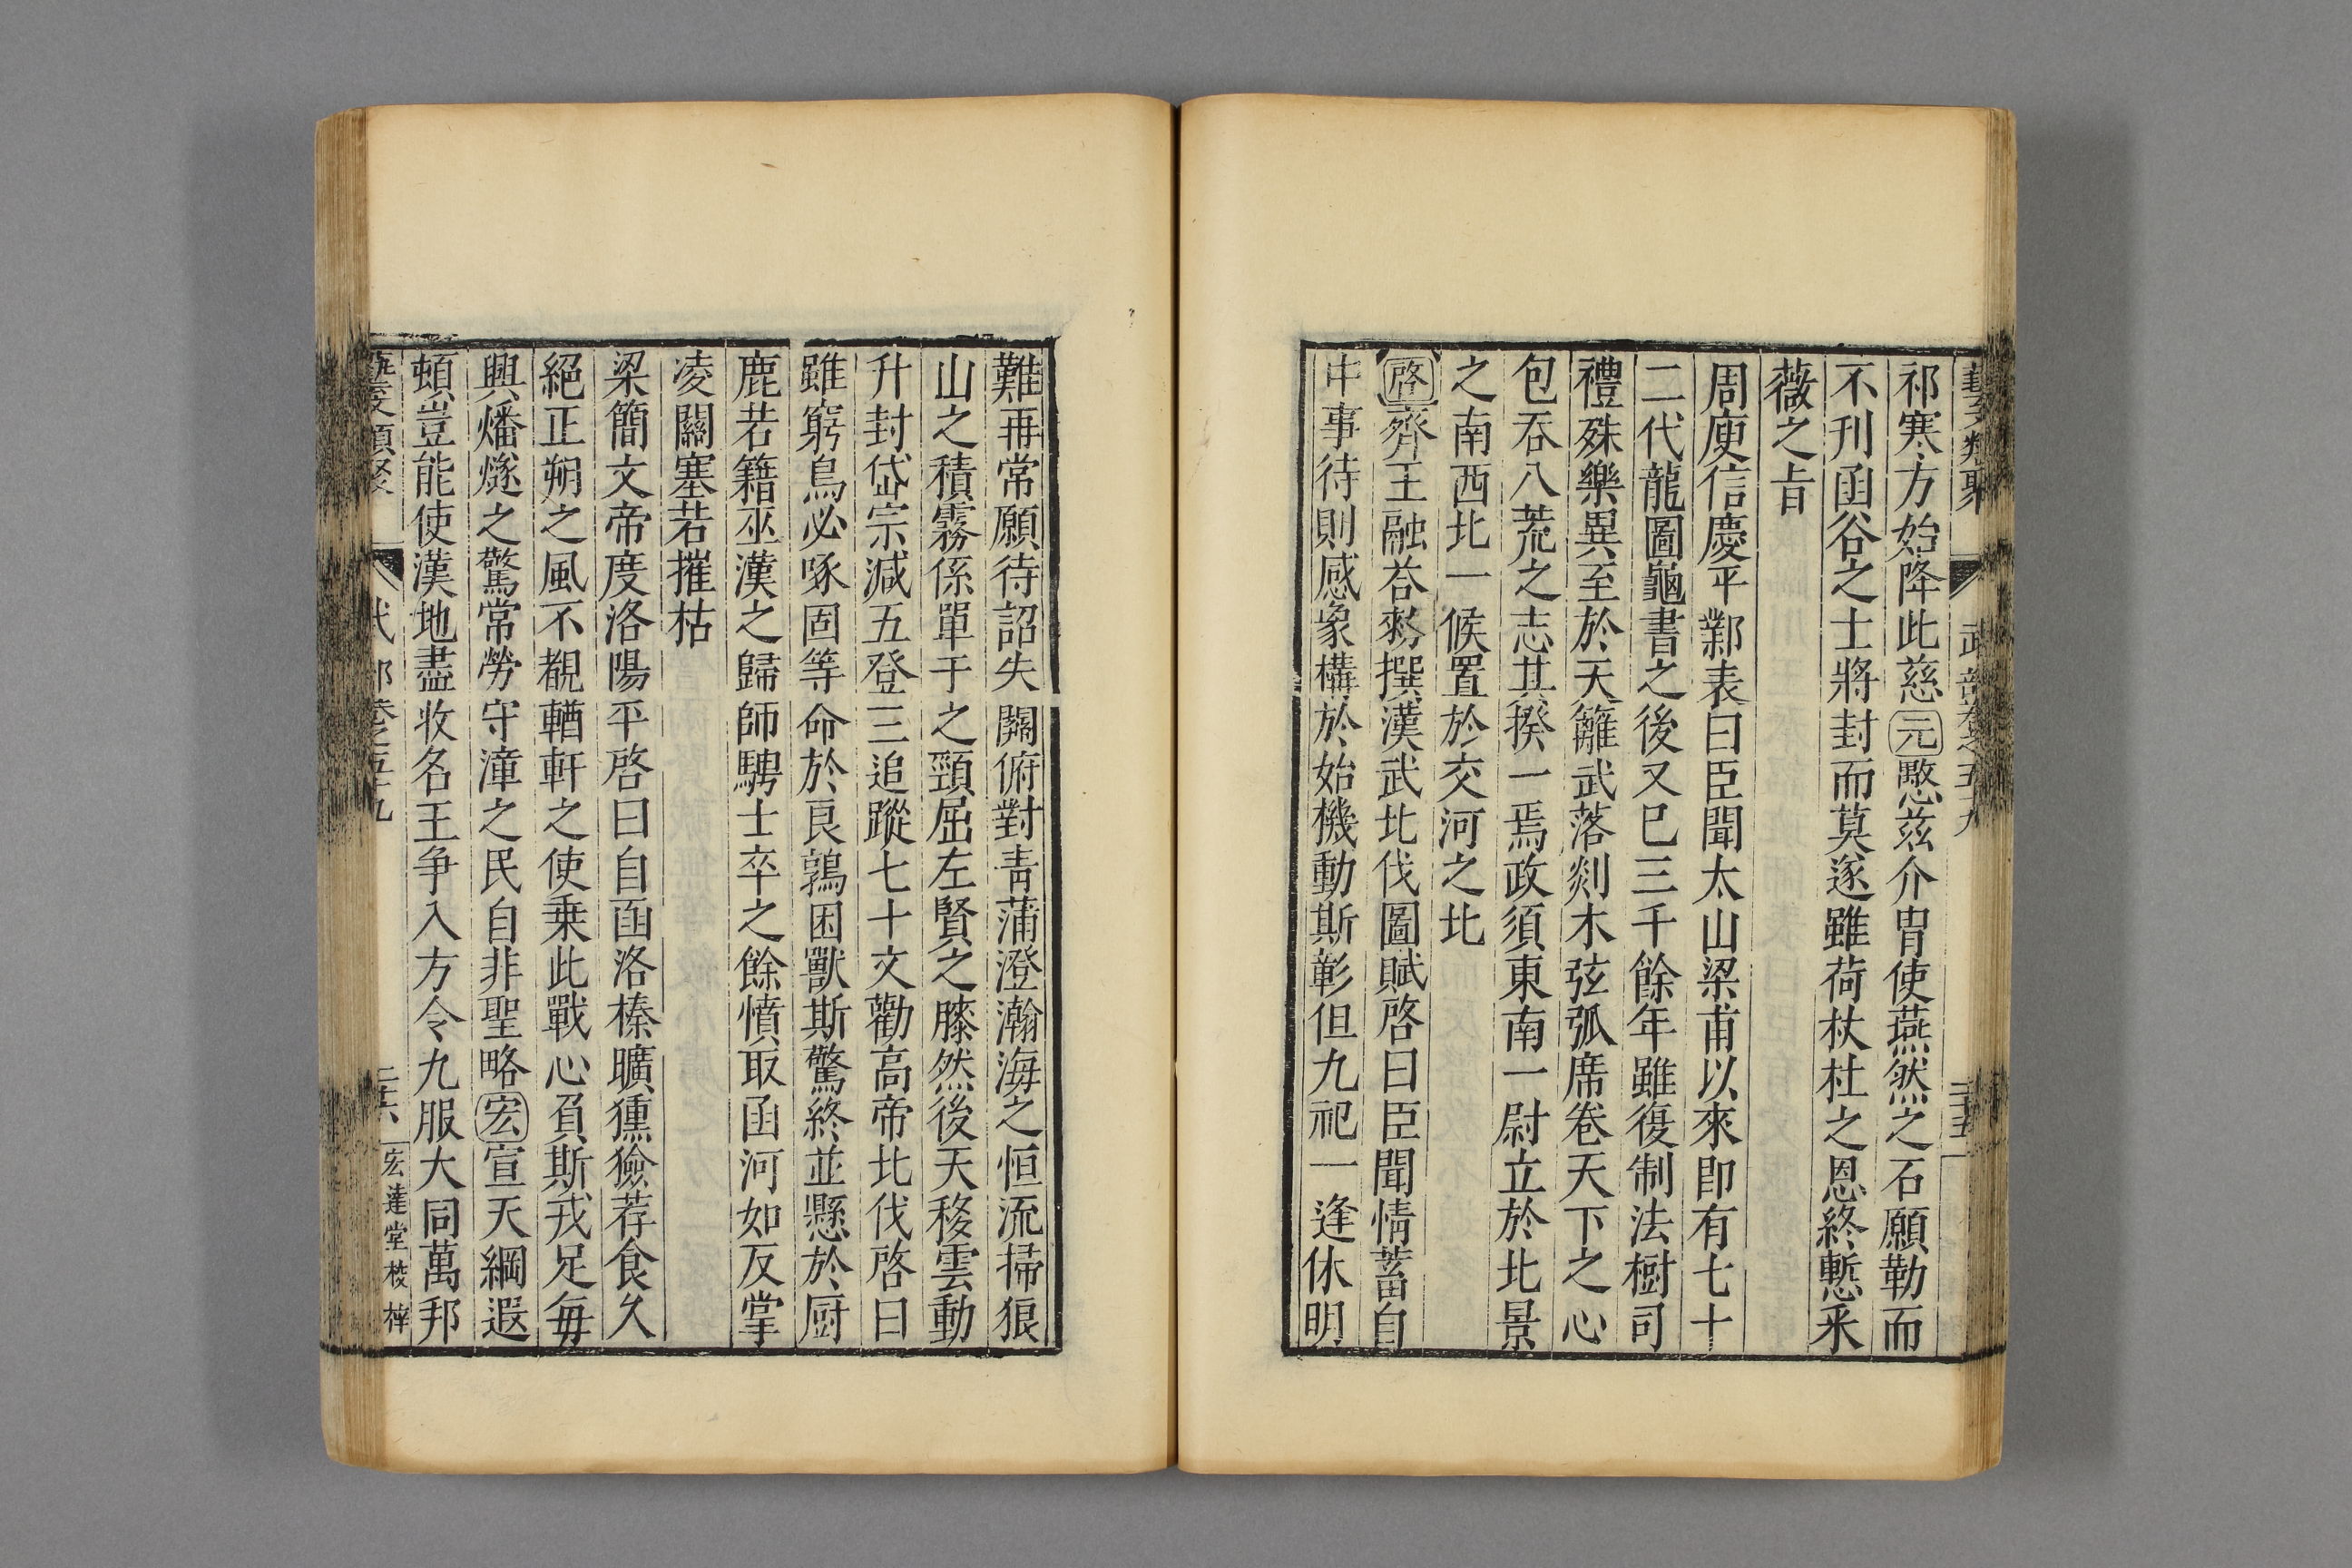 藝文類聚 武部卷之五十九 二十五
祁寒方始降此慈元愍茲介胄使燕然之石願勒而
不刊函谷之士將封而莫遂雖荷杕杜之恩終慙采
薇之旨
周庾信慶平鄴表曰臣聞太山梁甫以來卽有七十
二代龍圖龜書之後又已三千餘年雖復制法樹司
禮殊樂異至於天籬武落剡木弦弧席卷天下之心
包吞八荒之志其揆一焉政須東南一尉立於北景
之南西北一候置於交河之北
啓齊王融荅敕撰漢武北伐圖賦啓曰臣聞情蓄自
中事待則感象構於始機動斯彰但九祀一逢休明
難再常願待詔失闕俯對青蒲澄瀚海之恒流掃狼
山之積霧係單于之頸屈左賢之膝然後天移雲動
升封岱宗減五登三追蹤七十文勸高帝北伐啓曰
雖窮鳥必啄固等命於良鶉困獸斯驚終並懸於厨
鹿若籍巫漢之歸師騁士卒之餘憤取函河如反掌
凌關塞若摧枯
梁簡文帝度洛陽平啓曰自函洛榛曠獯獫荐食久
絕正朔之風不覩輶軒之使乗此戰心負斯戎足每
興燔燧之驚常勞守漳之民自非聖略宏宣天綱遐
頓豈能使漢地盡收名王争入方令九服大同萬邦
藝文類聚 武部卷之五十九 二十六 宏達堂梭梓